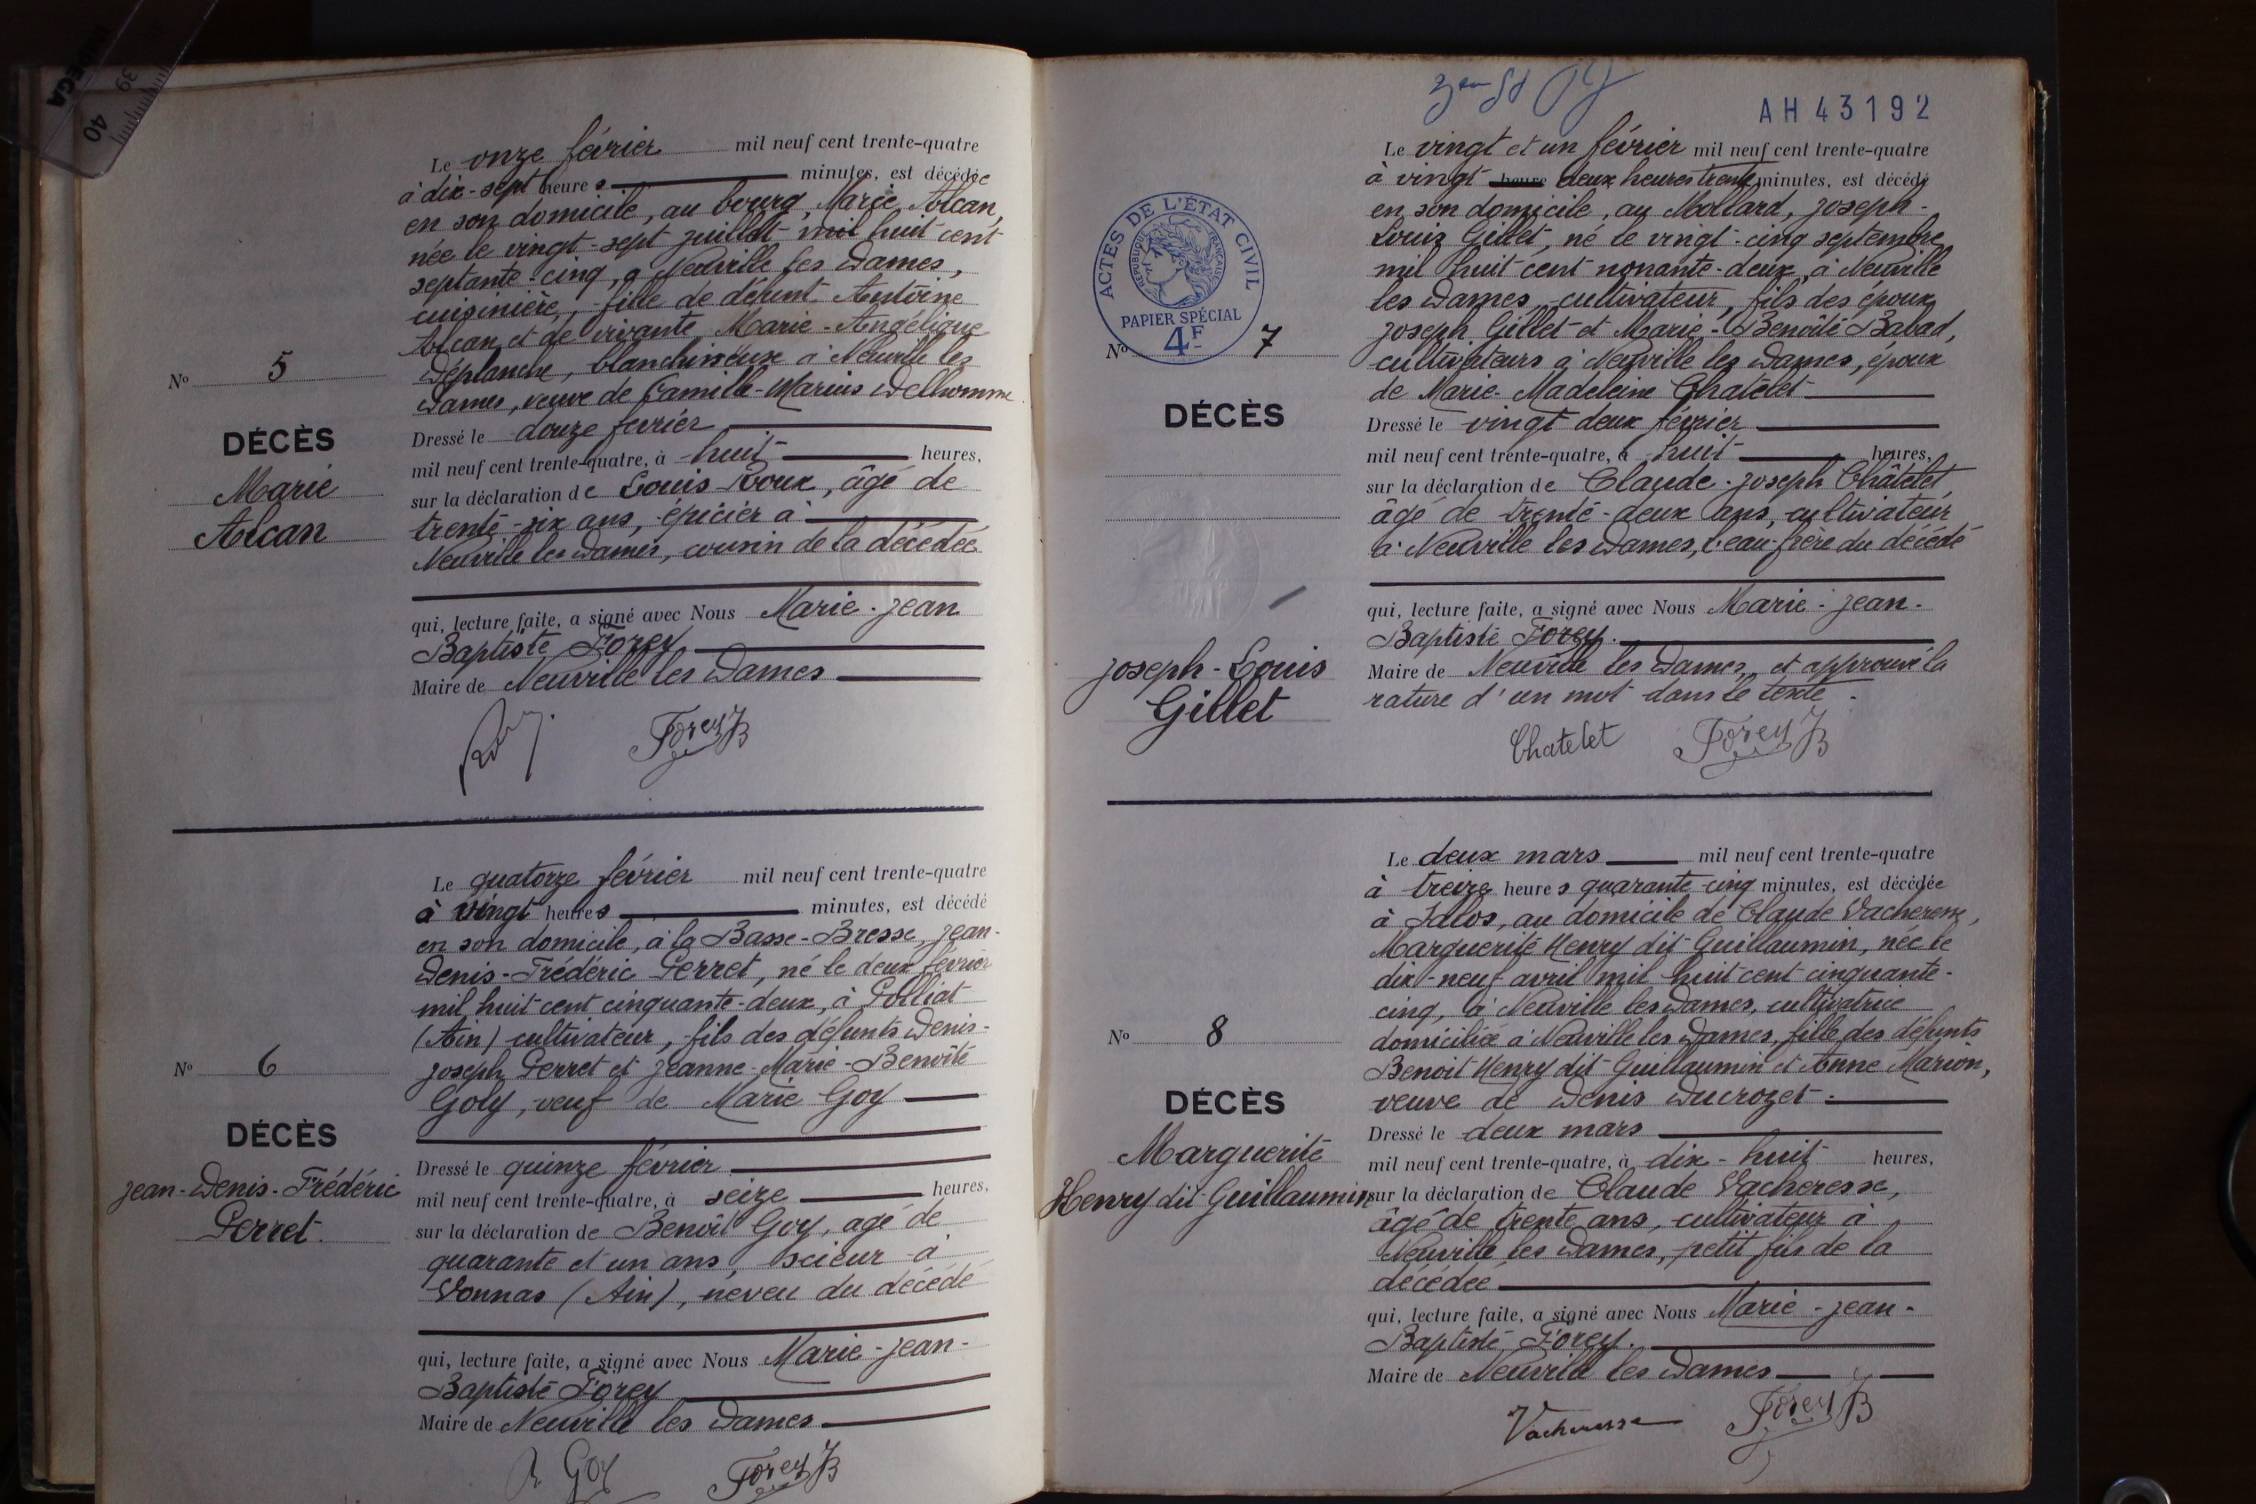 39
40
Le onze février mil neuf cent trente-quatre
à dix-sept heures minutes, est décédée
en son domicile, au bourg, Marie Alcan,
née le vingt-sept juillet mil huit cent
septante-cinq, à Neuville les Dames,
cuisinière, fille de défunt Antoine
Alcan et de vivante Marie-Angélique
Déplanche, blanchisseuse à Neuville les
Dames, veuve de Camille-Marius Delhomme.
Nº 5
DÉCÈS
Marie
Alcan
Dressé le douze février
mil neuf cent trente-quatre, à huit heures,
sur la déclaration de Louis Roux, âgé de
trente-six ans, épicier à
Neuville les Dames, cousin de la décédée
qui, lecture faite, a signé avec Nous Marie-Jean
Baptiste Forey
Maire de Neuville les Dames
Forey JB
Le quatorze février mil neuf cent trente-quatre
à vingt heures minutes, est décédé
en son domicile, à la Basse-Bresse, Jean-
Denis-Frédéric Perret, né le deux février
mil huit cent cinquante-deux, à Polliat
(Ain) cultivateur, fils des défunts Denis-
Joseph Perret et Jeanne-Marie-Benoîte
Goly, veuf de Marie Goy
Nº 6
DÉCÈS
Jean-Denis-Frédéric
Perret.
Dressé le quinze février
mil neuf cent trente-quatre, à seize heures,
sur la déclaration de Benoît Goy, âgé de
quarante et un ans, scieur à
Vonnas (Ain), neveu du décédé
qui, lecture faite, a signé avec Nous Marie-Jean-
Baptiste Forey
Maire de Neuville les Dames
Goy Forey JB
AH 43192
ACTES DE L'ÉTAT CIVIL
RÉPUBLIQUE FRANÇAISE
PAPIER SPÉCIAL
4F
Le vingt et un février mil neuf cent trente-quatre
à vingt heure deux heures trente minutes, est décédé
en son domicile, au Mollard, Joseph-
Louis Gillet, né le vingt-cinq septembre
mil huit cent nonante-deux, à Neuville
les Dames, cultivateur, fils des époux
Joseph Gillet et Marie-Benoîte Babad,
cultivateurs à Neuville les Dames, époux
de Marie-Madeleine Chatelet
Nº 7
DÉCÈS
Joseph-Louis
Gillet
Dressé le vingt deux février
mil neuf cent trente-quatre, à huit heures,
sur la déclaration de Claude-Joseph Châtelet,
âgé de trente-deux ans, cultivateur
à Neuville les Dames, beau-frère du décédé
qui, lecture faite, a signé avec Nous Marie-Jean-
Baptiste Forey.
Maire de Neuville les Dames, et approuvé la
rature d'un mot dans le texte.
Chatelet Forey JB
Le deux mars mil neuf cent trente-quatre
à treize heures quarante-cinq minutes, est décédée
à Salos, au domicile de Claude Vacheresse,
Marguerite Henry dit Guillaumin, née le
dix-neuf avril mil huit cent cinquante-
cinq, à Neuville les Dames, cultivatrice
domiciliée à Neuville les Dames, fille des défunts
Benoit Henry dit Guillaumin et Anne Marion,
veuve de Denis Ducrozet.
Nº 8
DÉCÈS
Marguerite
Henry dit Guillaumin
Dressé le deux mars
mil neuf cent trente-quatre, à dix-huit heures,
sur la déclaration de Claude Vacheresse,
âgé de trente ans, cultivateur à
Neuville les Dames, petit fils de la
décédée
qui, lecture faite, a signé avec Nous Marie-Jean-
Baptiste Forey.
Maire de Neuville les Dames
Vacheresse Forey JB